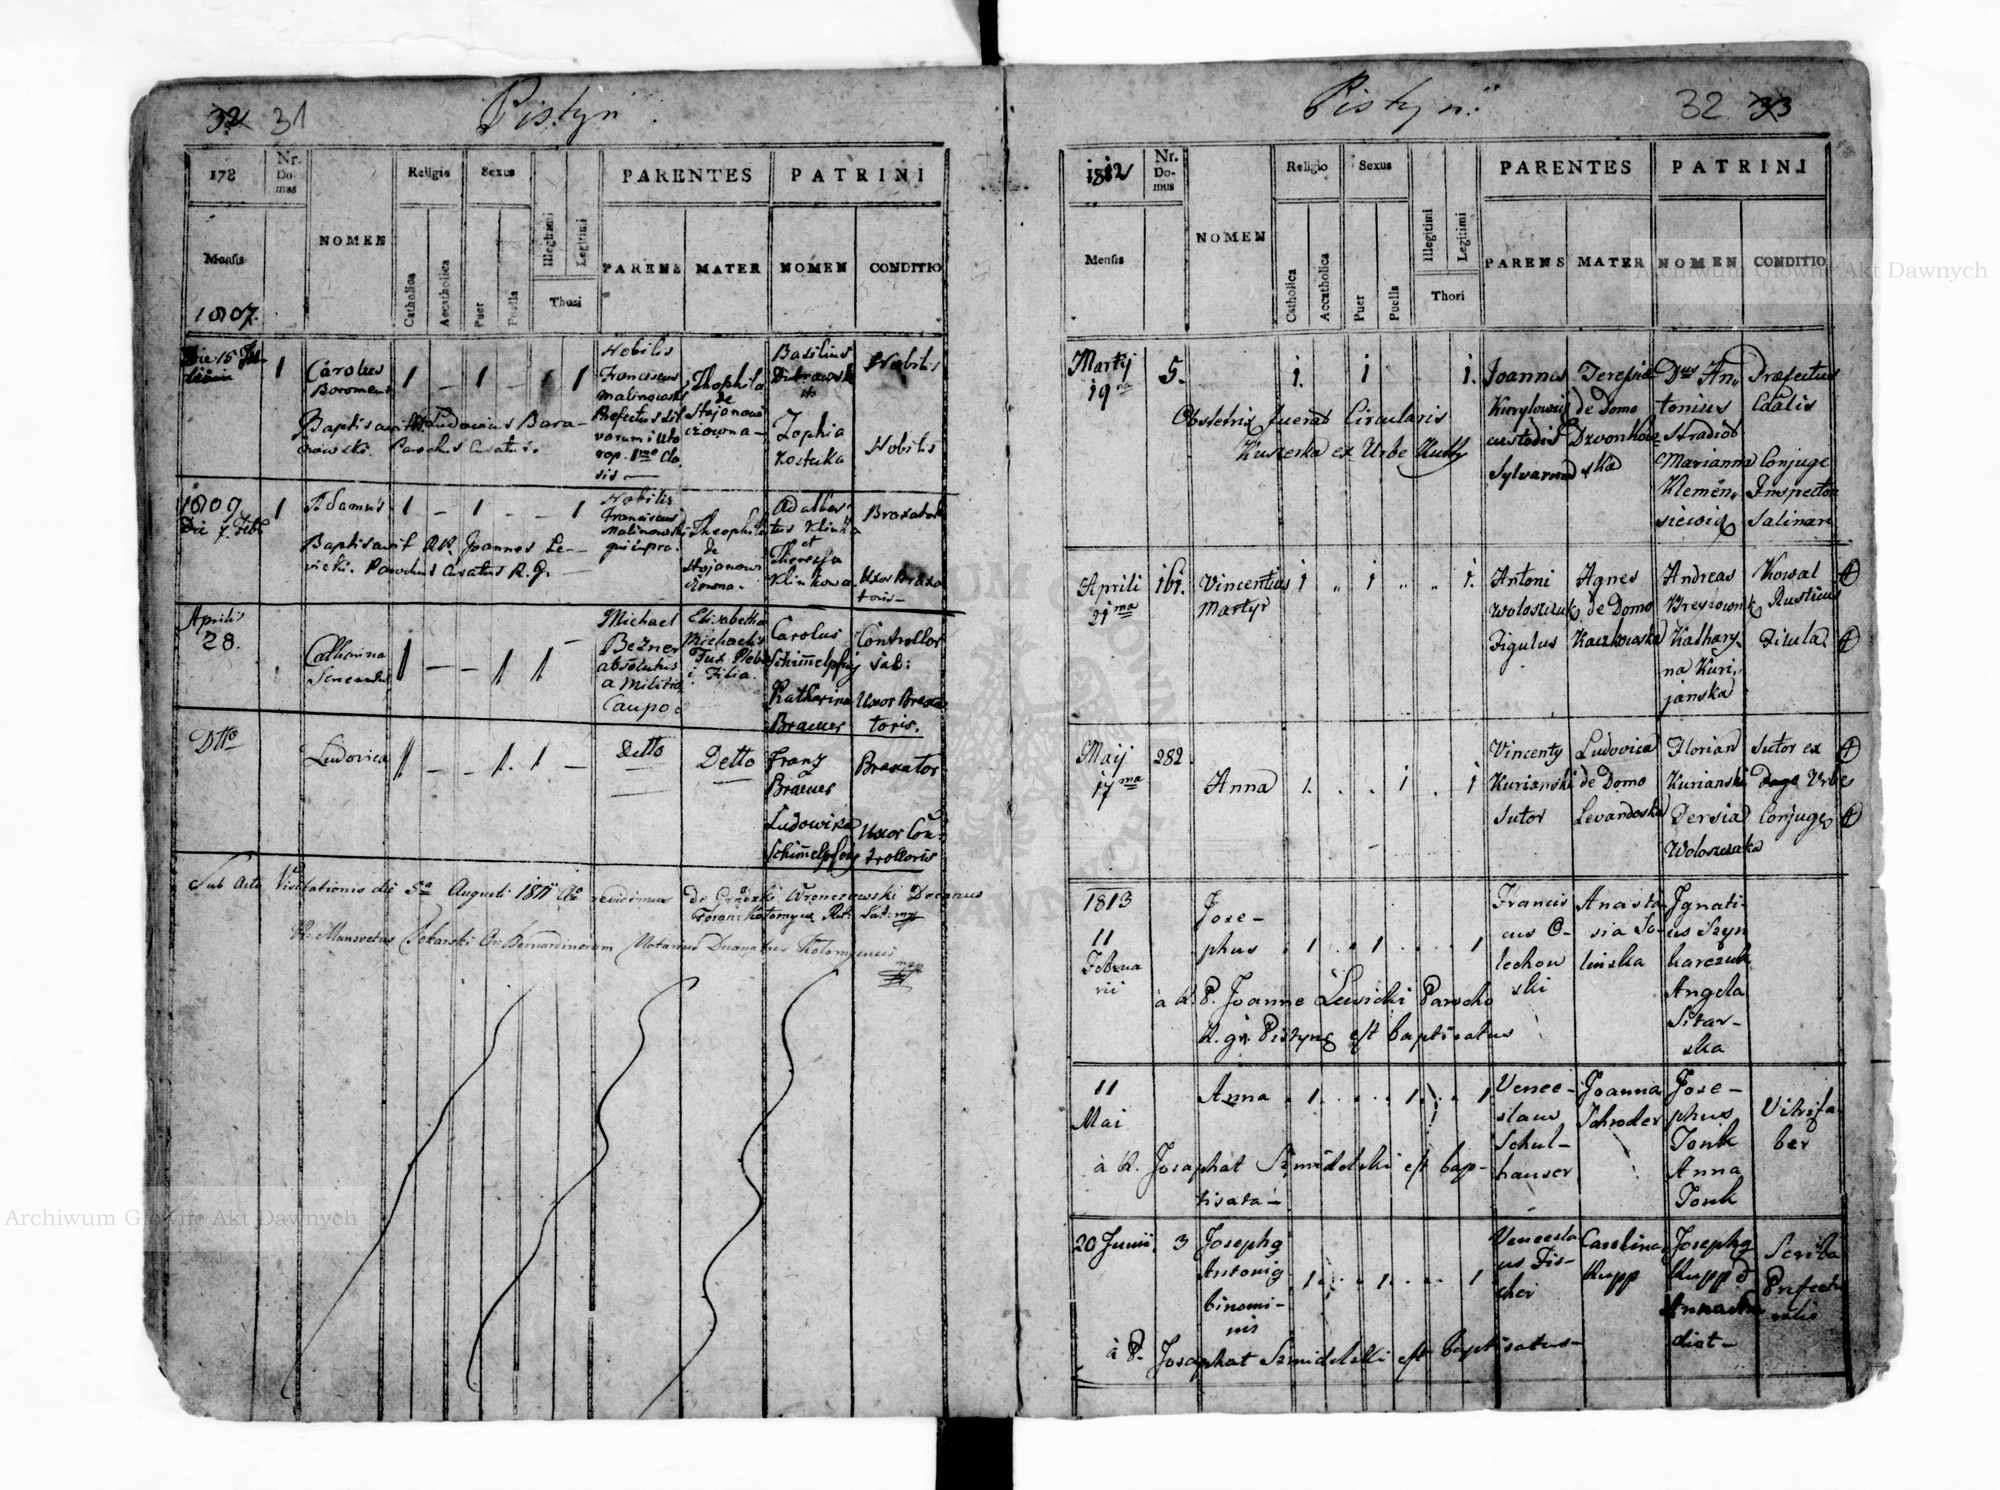 32 31
Pistyń
178
Nr. Domus
NOMEN
Religio
Sexus
PARENTES
PATRINI
Mensis
Catholica
Accatholica
Puer
Puella
Illegitimi
Legitimi
Thori
PARENS
MATER
NOMEN
CONDITIO
1807.
Die 15 Ju-
1
Carolus
Boromeus
1 – 1 – 1
Nobilis
Franciscus
Malinowski
Thophila
de
Stojanow
iczowna –
Basilius
Zophia
Kostuka
Nobilis
Nobilis
Baptisavit Ludovicus Bara-
nowski. Parochus Curatus.
1809
Die 7 Feb
1
Adamus
1 – 1 – – 1
Nobilis
Franciscus
Malinowski
Theophila
de
Stojanow
iczowna.
Adalber
tus Klinka
et
Theresia
Klinkowa
Braxator
Uxor Braxa
toris –
Baptisavit AR. Joannes Le-
vicki. Parochus Curatus R. G.
Aprilis
28.
Catharina
1 – – 1 1 –
Michael
Bezner
absolutus
a Militia
Caupo
Elisabetha
Michaelis
Filia.
Carolus
Schimelpfeng
Katharina
Braeuer
Controllor
Sal:
Uxor Braxa
toris.
Dtto
Ludovica
1 – – 1. 1 –
Detto
Detto
Franz
Braeuer
Ludowika
Schimelpfeng
Braxator
Uxor Con-
trolloris
Sub Actu Visitationis die 5ta Augusti 1811 Ao revidimus de Wronczewski Decanus
Foran: Kolomyen
Mansvetus Sekarski Or. Bernardinorum Notarius Decanatus Kolomyensis
mpp
Pistyń.
32 33
1812
Nr. Domus
NOMEN
Religio
Sexus
PARENTES
PATRINI
Mensis
Catholica
Accatholica
Puer
Puella
Illegitimi
Legitimi
Thori
PARENS
MATER
NOMEN
CONDITIO
Martij
19na
5.
1. 1 1.
Joannes
Kurylowij
custodis
Sylvarum
Teresia
de Domo
Dzwonkow
ska
Dnus An,,
tonius
Stradiot
Marianna
Klemen,,
siewicz
Praefectus
Caalis
Conjuge
Inspector
Salinari
Obstetrix fuerat Circularis
Kuszerka ex Urbe Kutty
Aprili
21ma
161.
Vincentius
Martyr
1 ,, 1 ,, ,, 1.
Antoni
Woloszczuk
Figulus
Agnes
de Domo
Kaczkowska
Andreas
Breszowski
Kathary-
na Kuri,,
janska
Kowal
Rusticus
Titula
Maij
17ma
282.
Anna
1. . . 1 . 1
Vincenty
Kurianski
Sutor
Ludovica
de Domo
Levandoska
Florian
Kurianski
Tersia
Woloszczaka
Sutor ex
Urbe
Conjuge
1813
11
Februa
rii
Jose-
phus
. 1 . . 1 . . . . 1
Francis
cus O-
lechow
ski
Anasta
sia So-
linska
Ignati-
us Szyn
karczuk
Angela
Sitar-
ska
à R. P. Joanne Lewicki Parocho
R. gr. Pistyne est baptisatus
11
Mai
Anna
. 1 . . . . 1 . . . 1
Vence-
slaus
Schul-
hauser
Joanna
Schroder
Jose-
phus
Tonk
Anna
Tonk
Vitrifa
ber
à R. Josaphat Szmidelski est bap-
tisata –
20 Junii.
3
Josephg
Antonig
binomi-
nis
. 1 . . . 1 . . . . 1
Vencesla
us Fis-
cher
Carolina
Rupp
Josephg
Rupp
Scriba
Prefectu
ralis
à P. Josaphat Szmidelski est baptisatus –
Archiwum Główne Akt Dawnych
Archiwum Główne Akt Dawnych